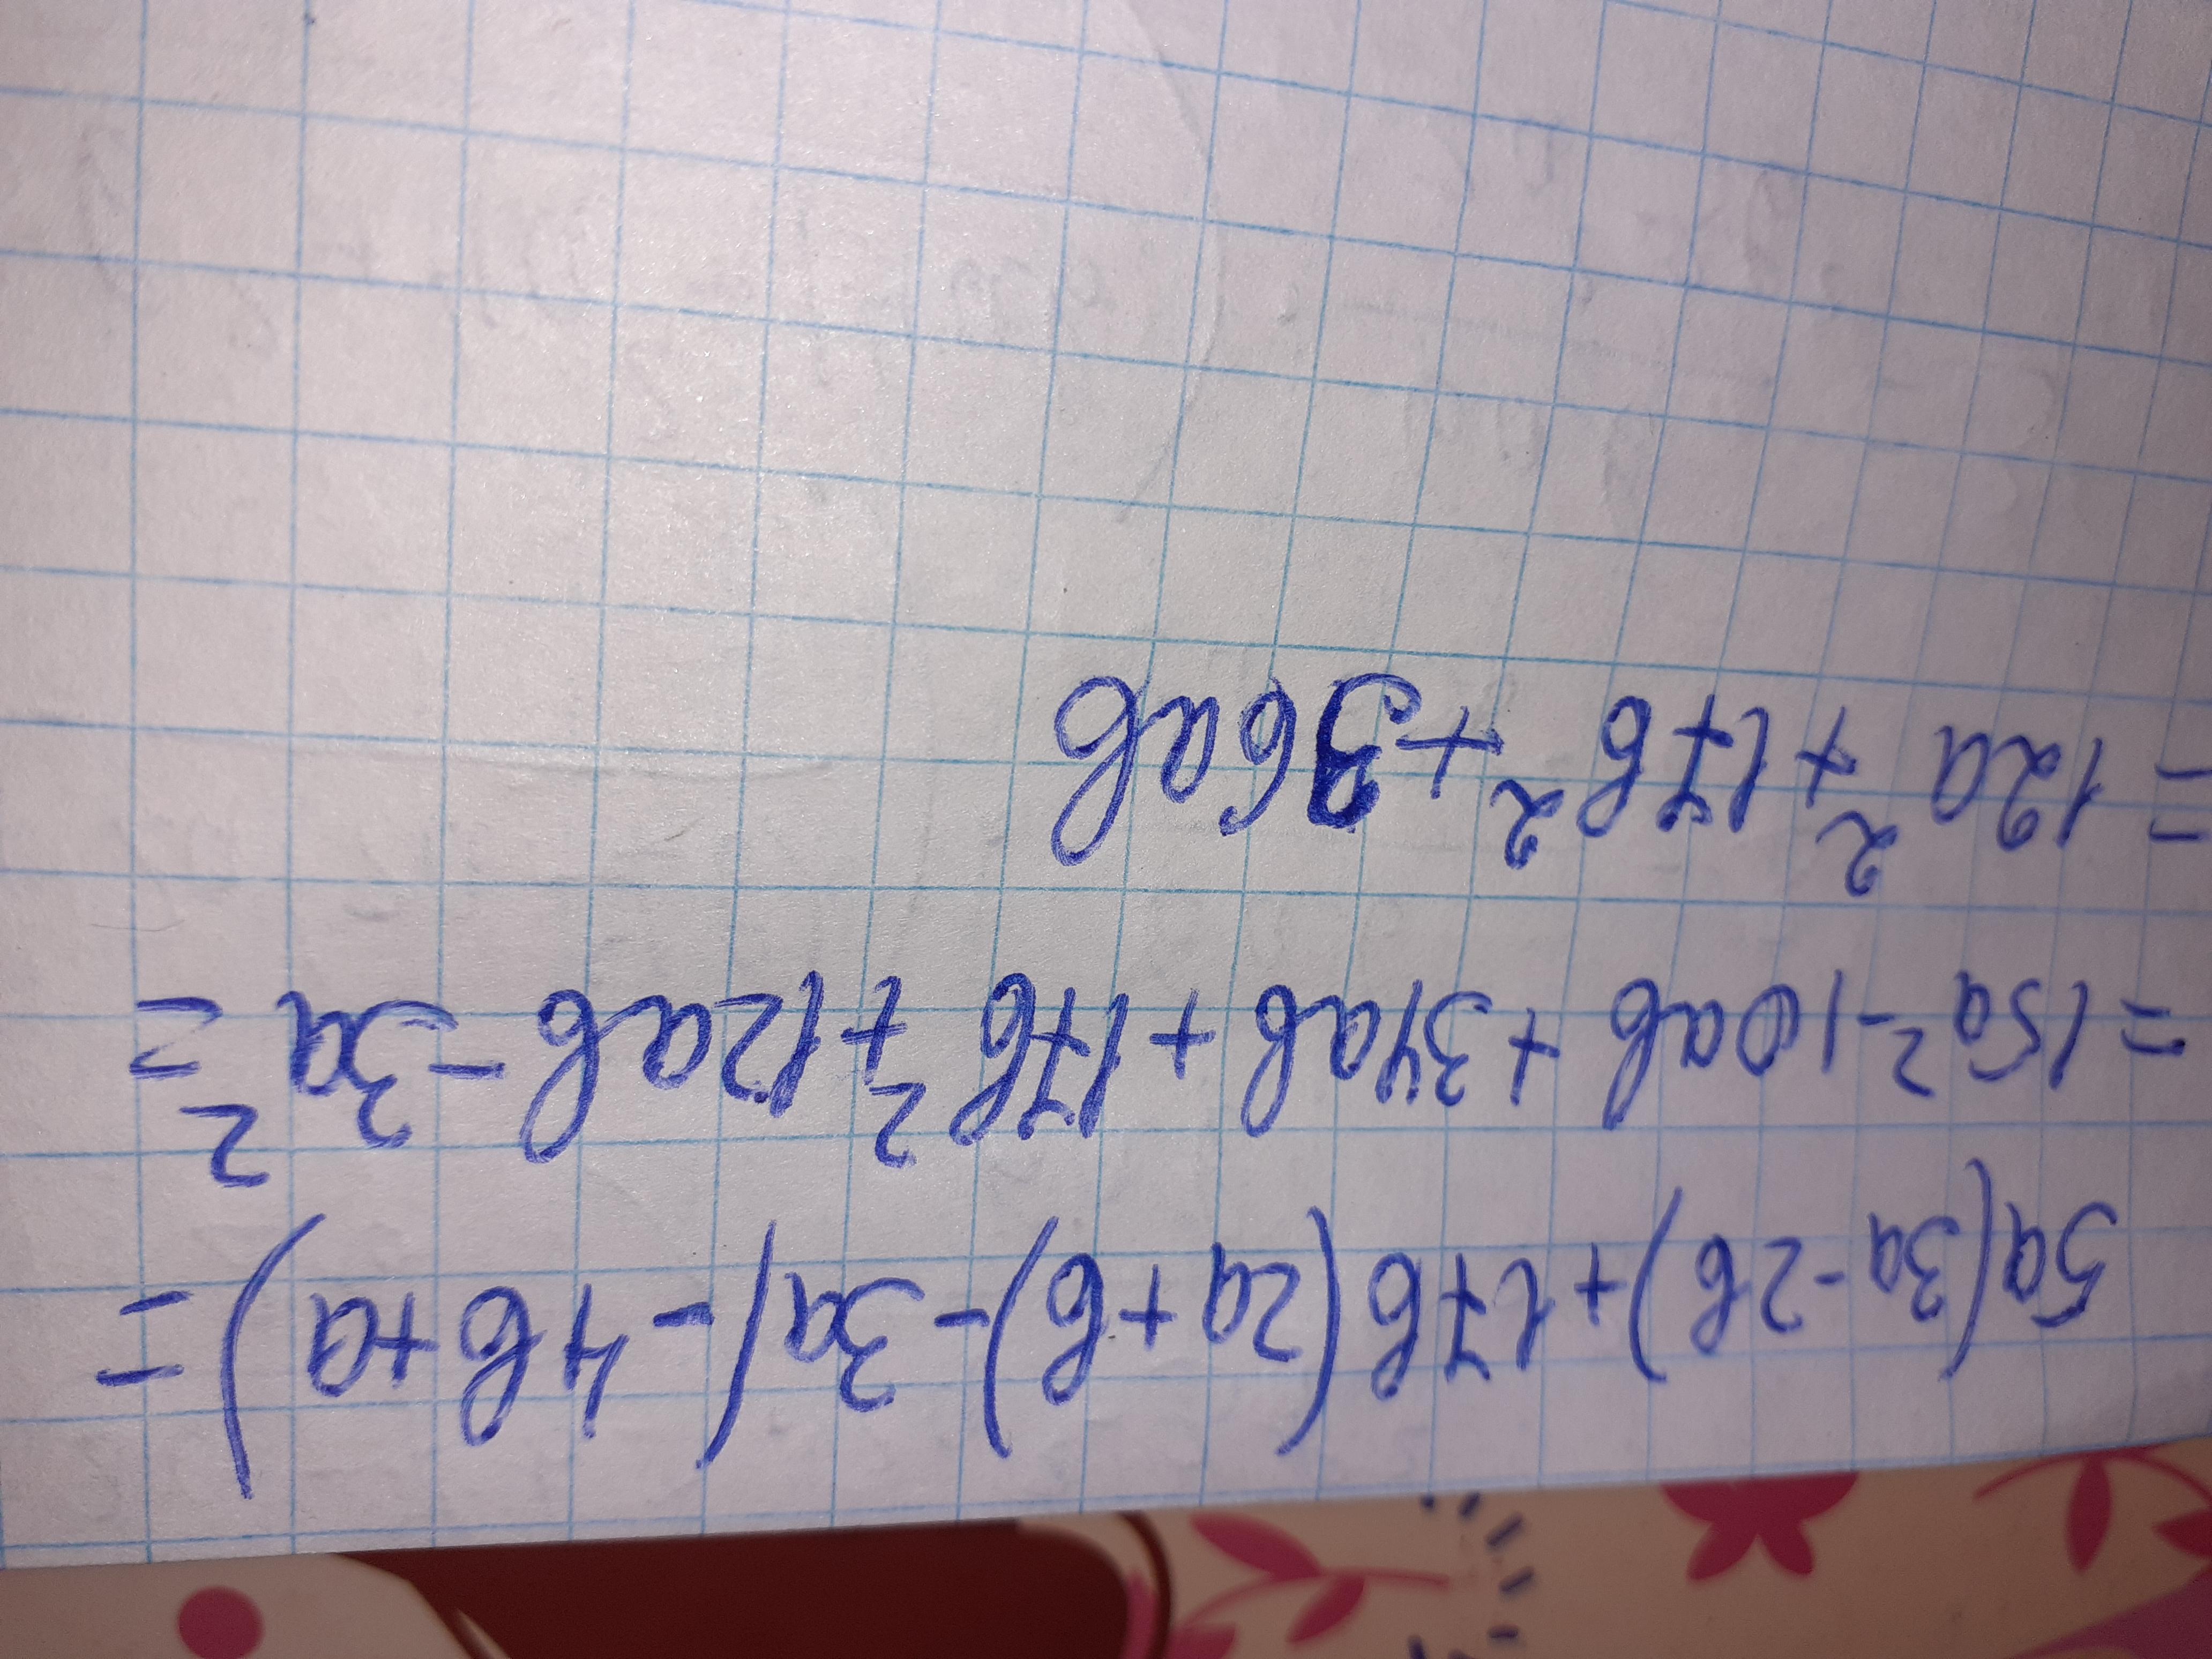 5a(3a-2b)+17b(2a+b)-3a(-4b+a)=
=15a²-10ab+34ab+17b²+12ab-3a²=
=12a²+17b²+36ab